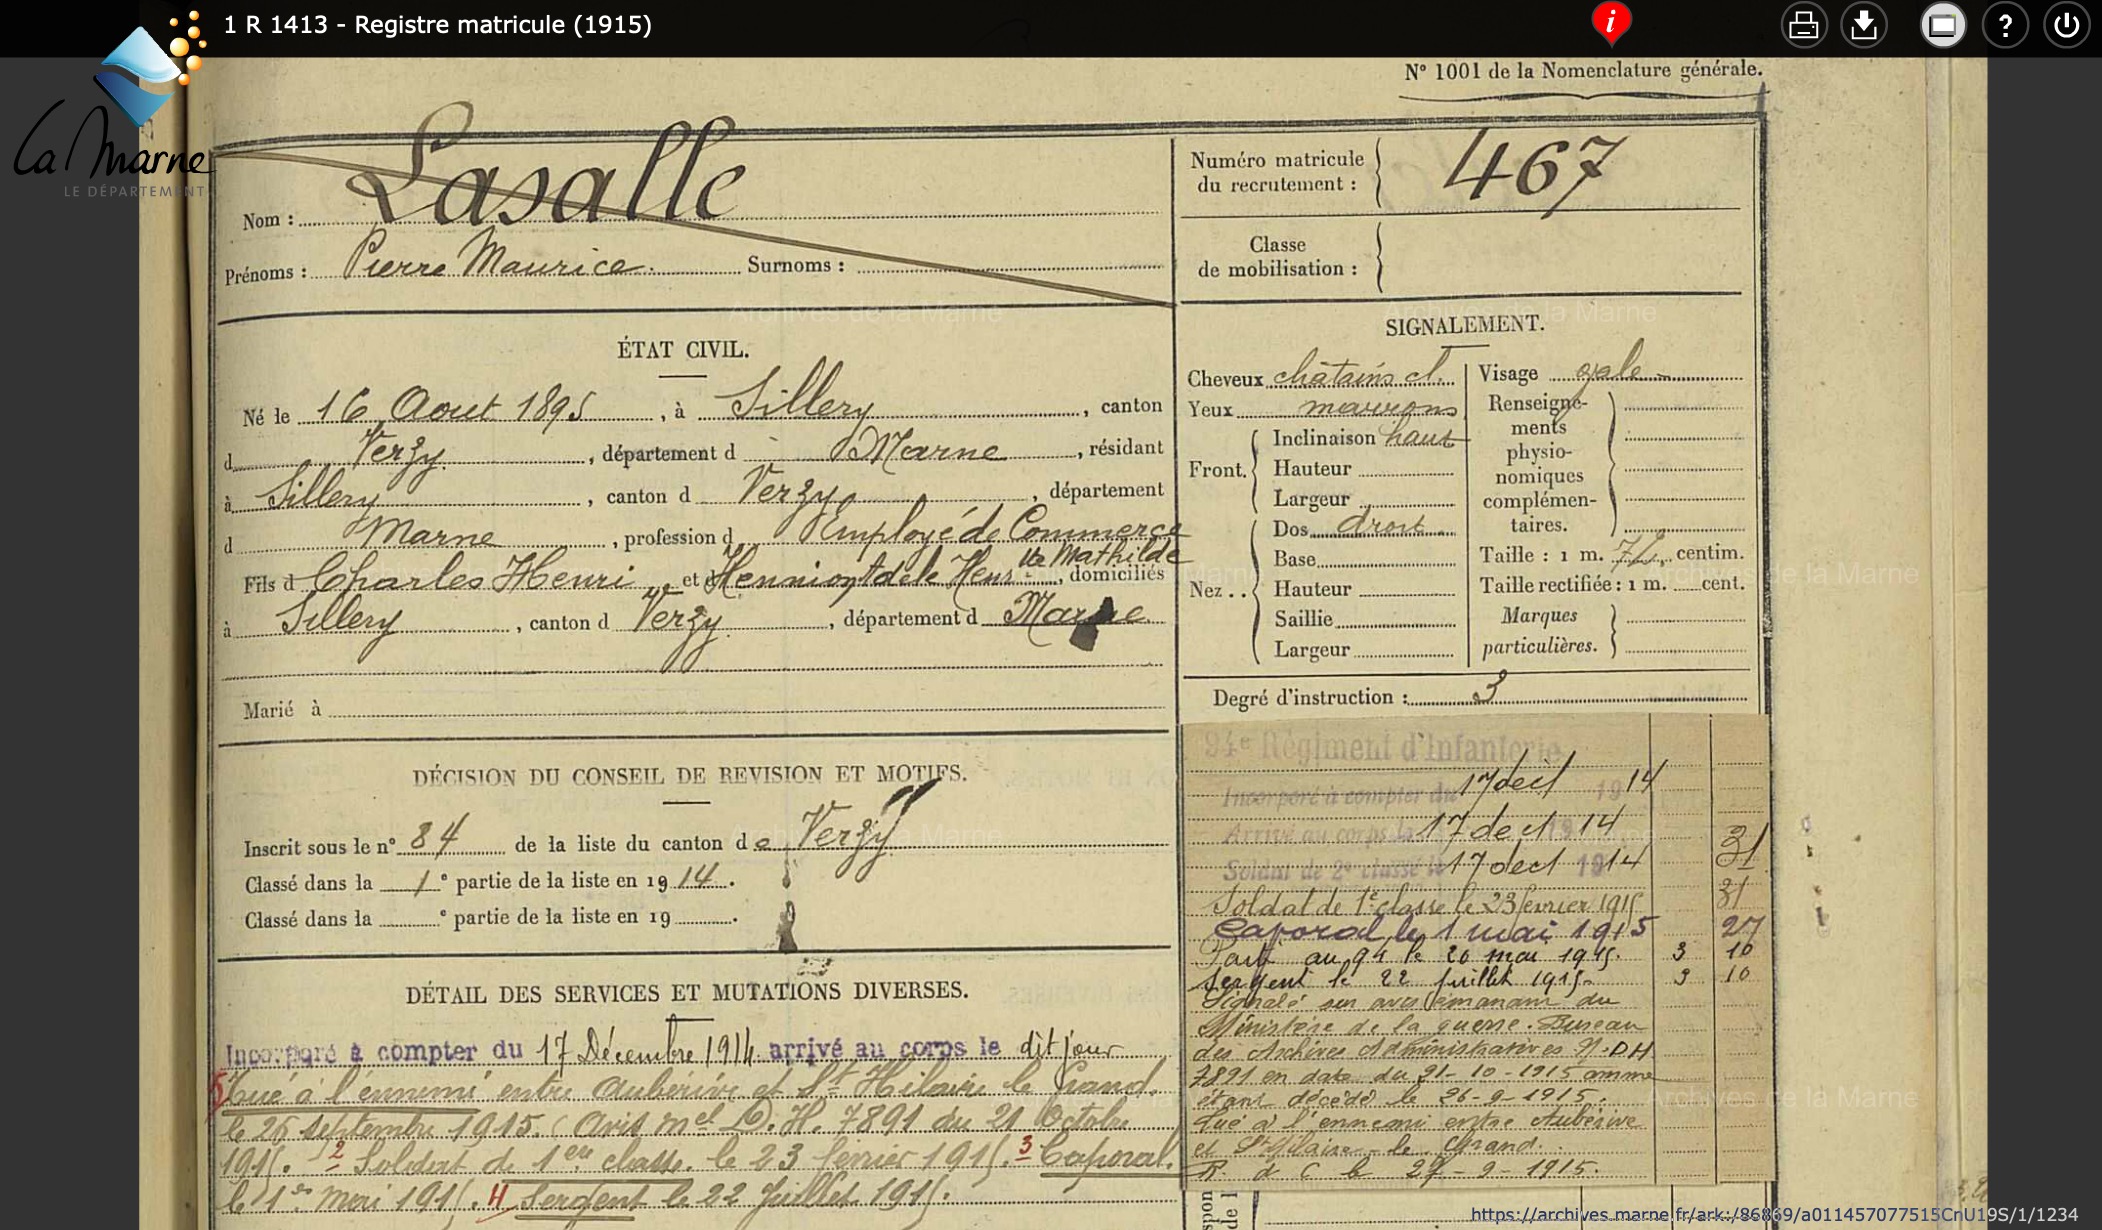 1 R 1413 - Registre matricule (1915)
La Marne
LE DÉPARTEMENT
N° 1001 de la Nomenclature générale.
Nom : Lasalle
Prénoms : Pierre Maurice. Surnoms :
Numéro matricule du recrutement : 467
Classe de mobilisation :
ÉTAT CIVIL.
Né le 16 Aout 1895, à Sillery, canton
d Verzy, département d Marne, résidant
à Sillery, canton d Verzy, département
d Marne, profession d Employé de Commerce
Fils d Charles Henri et d Henniont Adèle Mathilde, domiciliés
à Sillery, canton d Verzy, département d Marne
Marié à
SIGNALEMENT.
Cheveux châtains cl.
Yeux marrons
Front. Inclinaison haut
Hauteur
Largeur
Nez . . Dos droit
Base
Hauteur
Saillie
Largeur
Visage ovale
Renseigne-
ments
physio-
nomiques
complémen-
taires.
Taille : 1 m. centim.
Taille rectifiée : 1 m. cent.
Marques
particulières.
Degré d'instruction : 3
DÉCISION DU CONSEIL DE REVISION ET MOTIFS.
Inscrit sous le n° 84 de la liste du canton de Verzy
Classé dans la 1e partie de la liste en 1914.
Classé dans la e partie de la liste en 19 .
DÉTAIL DES SERVICES ET MUTATIONS DIVERSES.
Incorporé à compter du 17 Décembre 1914 arrivé au corps le dit jour
5 Tué à l'ennemi entre Aubérive et St Hilaire le Grand.
le 26 septembre 1915. (Avis mel D. H. 7891 du 21 Octobre
1915. 2 Soldat de 1ere classe. le 23 février 1915. 3 Caporal.
le 1er mai 1915. 4 Sergent le 22 Juillet 1915.
94e Régiment d'Infanterie
Incorporé à compter du 17 dect 1914
Arrivé au corps le 17 dect 1914
31
Soldat de 2e classe le 17 dect 1914
Soldat de 1e classe le 23 fevrier 1915
31
Caporal le 1 mai 1915
27
au 94 le 20 mai 1915. 3 10
Sergent le 22 juillet 1915. 3 10
Signalé sur avis émanant du
Ministère de la guerre. Bureau
des Archives Administratives N. DH
7891 en date du 21-10-1915 comme
étant décédé le 26-9-1915.
Tué à l'ennemi entre Aubérive
et St Hilaire-le Grand.
R. d C le 27-9-1915.
Archives de la Marne
https://archives.marne.fr/ark:/86869/a011457077515CnU19S/1/1234